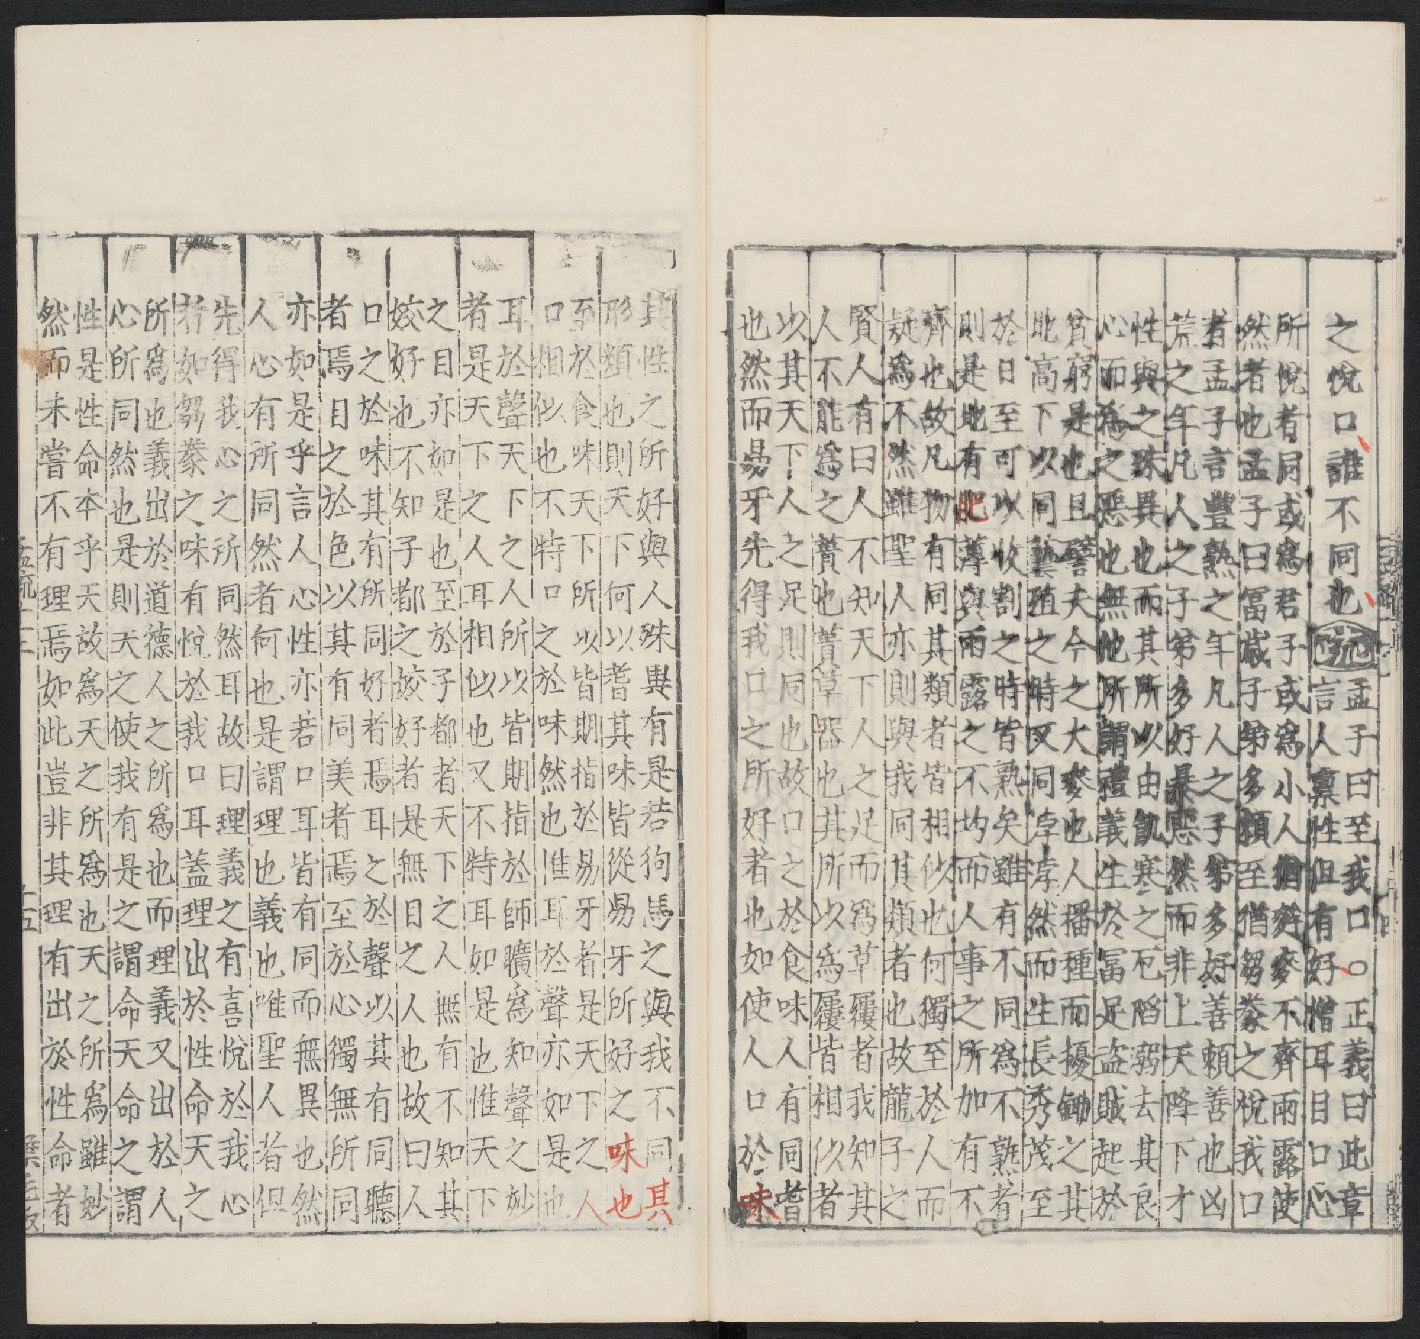 之悅口誰不同也疏孟子曰至我口○正義曰此章
言人稟性俱有好憎耳目口心
所悅者同或爲君子或爲小人猶麰麥不齊雨露使
然者也孟子曰富歲子弟多賴至猶芻豢之悅我口
者孟子言豐熟之年凡人之子弟多好善賴善也凶
荒之年凡人之子弟多好暴惡然而非上天降下才
性與之殊異也而其所以由飢寒之戹陷溺去其良
心而爲之惡也無他所謂禮義生於富足盗賊起於
貧窮是也且譬夫今之大麥也人播種而擾鋤之其
地高下以同藝殖之時又同浡浡然而生長秀茂至
於日至可以收割之時皆熟矣雖有不同爲不熟者
則是地有肥薄與雨露之不均而人事之所加有不
齊也故凡物有同其類者皆相似也何獨至於人而
疑爲不然雖聖人亦則與我同其類者也故龍子之
賢人有曰人不知天下人之足而爲草屨者我知其
人不能爲之蕢也蕢草器也其所以爲屨皆相似者
以其天下人之足則同也故口之於食味人有同耆
也然而易牙先得我口之所好者也如使人口於味
其性之所好與人殊異有是若狗馬之與我不同其
形類也則天下何以耆其味皆從易牙所好之味也
至於食味天下所以皆期指於易牙者是天下之人
口相似也不特口之於味然也惟耳於聲亦如是也
耳於聲天下之人所以皆期指於師曠爲知聲之妙
者是天下之人耳相似也又不特耳如是也惟天下
之目亦如是也至於子都者天下之人無有不知其
姣好也不知子都之姣好者是無目之人也故曰人
口之於味其有所同好者焉耳之於聲以其有同聽
者焉目之於色以其有同美者焉至於心獨無所同
亦如是乎言人心性亦若口耳皆有同而無異也然
人心有所同然者何也是謂理也義也唯聖人者但
先得我心之所同然耳故曰理義之有喜悅於我心
者如芻豢之味有悅於我口耳蓋理出於性命天之
所爲也義出於道德人之所爲也而理義又出於人
心所同然也是則天之使我有是之謂命天命之謂
性是性命本乎天故爲天之所爲也天之所爲雖妙
然而未嘗不有理焉如此豈非其理有出於性命者